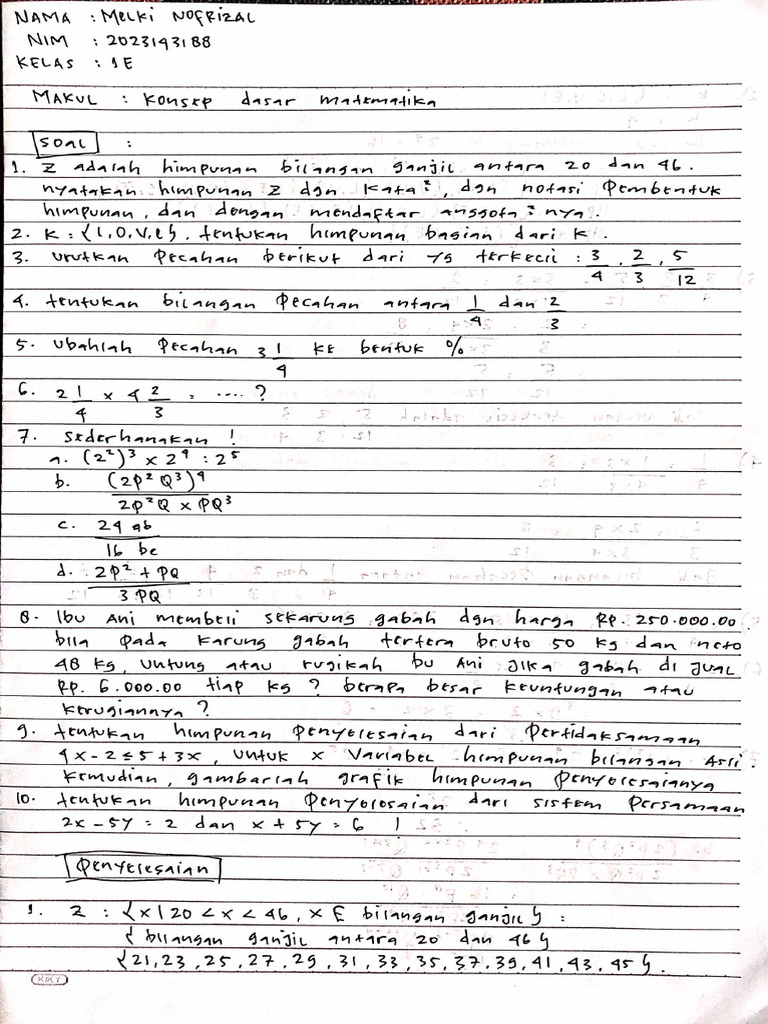 NAMA : MELKI NOFRIZAL
NIM : 2023143188
KELAS : 1E
MAKUL : Konsep dasar matematika
SOAL :
1. Z adalah himpunan bilangan ganjil antara 20 dan 46.
nyatakan himpunan Z dgn kata², dgn notasi Pembentuk
himpunan, dan dengan mendaftar anggota² nya.
2. K = {l, o, v, e}, tentukan himpunan bagian dari K.
3. Urutkan Pecahan berikut dari yg terkecil : 3/4, 2/3, 5/12
4. tentukan bilangan Pecahan antara 1/4 dan 2/3
5. Ubahlah Pecahan 3 1/4 ke bentuk %
6. 2 1/4 × 4 2/3 = .... ?
7. Sederhanakan !
a. (2²)³ × 2⁴ : 2⁵
b. (2P²Q³)⁴ / 2P²Q × PQ³
c. 24 ab / 16 bc
d. 2P² + PQ / 3 PQ
8. Ibu Ani membeli sekarung gabah dgn harga RP. 250.000.00.
bila pada karung gabah tertera bruto 50 kg dan neto
48 kg, untung atau rugikah bu Ani jika gabah di jual
RP. 6.000.00 tiap kg ? berapa besar keuntungan atau
kerugiannya ?
9. tentukan himpunan penyelesaian dari Pertidaksamaan
4x - 2 ≤ 5 + 3x, untuk x Variabel himpunan bilangan Asli.
Kemudian, gambarlah grafik himpunan penyelesaianya
10. tentukan himpunan penyelesaian dari sistem Persamaan
2x - 5y = 2 dan x + 5y = 6 !
Penyelesaian
1. Z : {x | 20 < x < 46, x E bilangan ganjil} :
{bilangan ganjil antara 20 dan 46}
{21, 23, 25, 27, 29, 31, 33, 35, 37, 39, 41, 43, 45}.